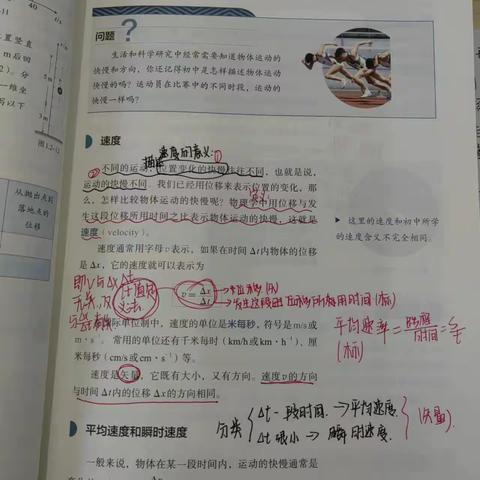 问题
?
生活和科学研究中经常需要知道物体运动的
快慢和方向，你还记得初中是怎样描述物体运动
快慢的吗？运动员在比赛中的不同时段，运动的
快慢一样吗？
置竖直
m后回
一维坐
写以下
图1.2-12
从抛出点到
落地点的
位移
速度
描述
速度的意义：①
②不同的运动，位置变化的快慢往往不同，也就是说，
运动的快慢不同。我们已经用位移来表示位置的变化，那
么，怎样比较物体运动的快慢呢？物理学中用位移与发
生这段位移所用时间之比表示物体运动的快慢，这就是
速度（velocity）。
这里的速度和初中所学
的速度含义不完全相同。
速度通常用字母v表示，如果在时间Δt内物体的位移
是Δx，它的速度就可以表示为
即V与Δx Δt
无关，及
比值定
义法
v = Δx/Δt
→发生这段位移所用时间（标）
平均速率 = 路程/时间 = s/t
（标）
国际单位制中，速度的单位是米每秒，符号是m/s或
m·s⁻¹。常用的单位还有千米每时（km/h或km·h⁻¹）、厘
米每秒（cm/s或cm·s⁻¹）等。
速度是矢量，它既有大小，又有方向。速度v的方向
与时间Δt内的位移Δx的方向相同。
分类
Δt 一段时间 → 平均速度
Δt 很小 → 瞬时速度
（矢量）
平均速度和瞬时速度
一般来说，物体在某一段时间内，运动的快慢通常是